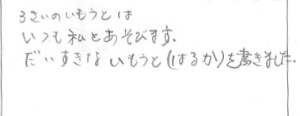 3さいのいもうとは
いつも私とあそびます.
だいすきな いもうと(はるか)を書きました.